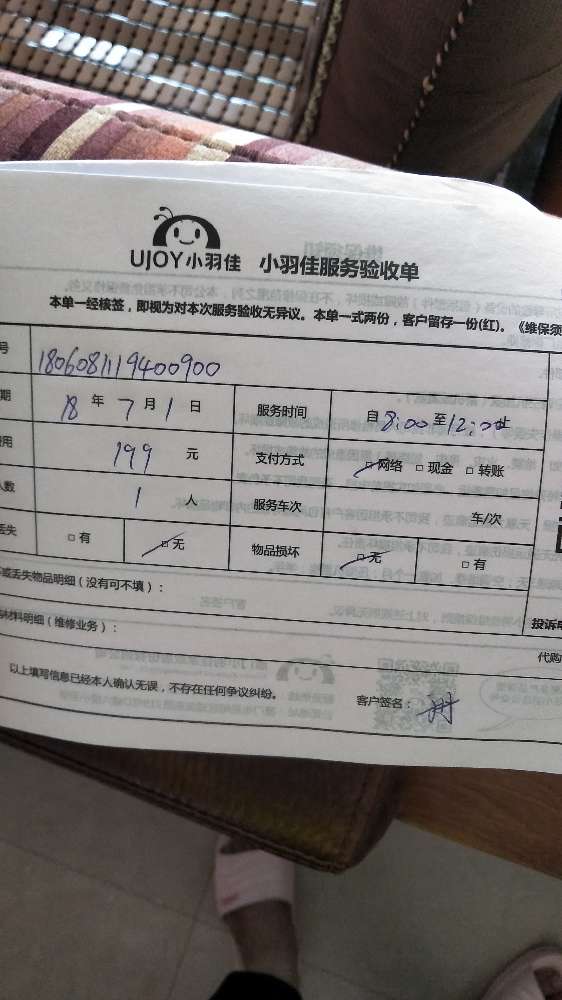 UJOY小羽佳 小羽佳服务验收单
本单一经核签，即视为对本次服务验收无异议。本单一式两份，客户留存一份(红)。《维保须
号 1806081119400900
期 18 年 7 月 1 日 服务时间 自 8:00 至 12:00 止
费用 199 元 支付方式 □网络 □现金 □转账
人数 1 人 服务车次 车/次
丢失 □有 □无 物品损坏 □无 □有
或丢失物品明细（没有可不填）：
材料明细（维修业务）：
投诉电
代购
以上填写信息已经本人确认无误，不存在任何争议纠纷。 客户签名：